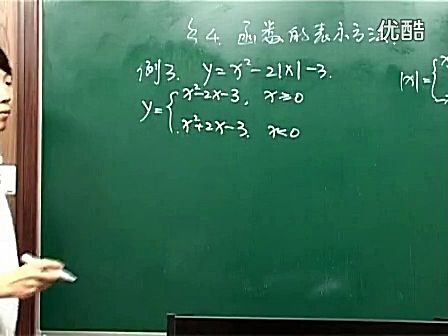 优酷
§4. 函数的表示方法
例3. y=x²-2|x|-3.
y={x²-2x-3, x≥0
x²+2x-3. x<0
|x|={x